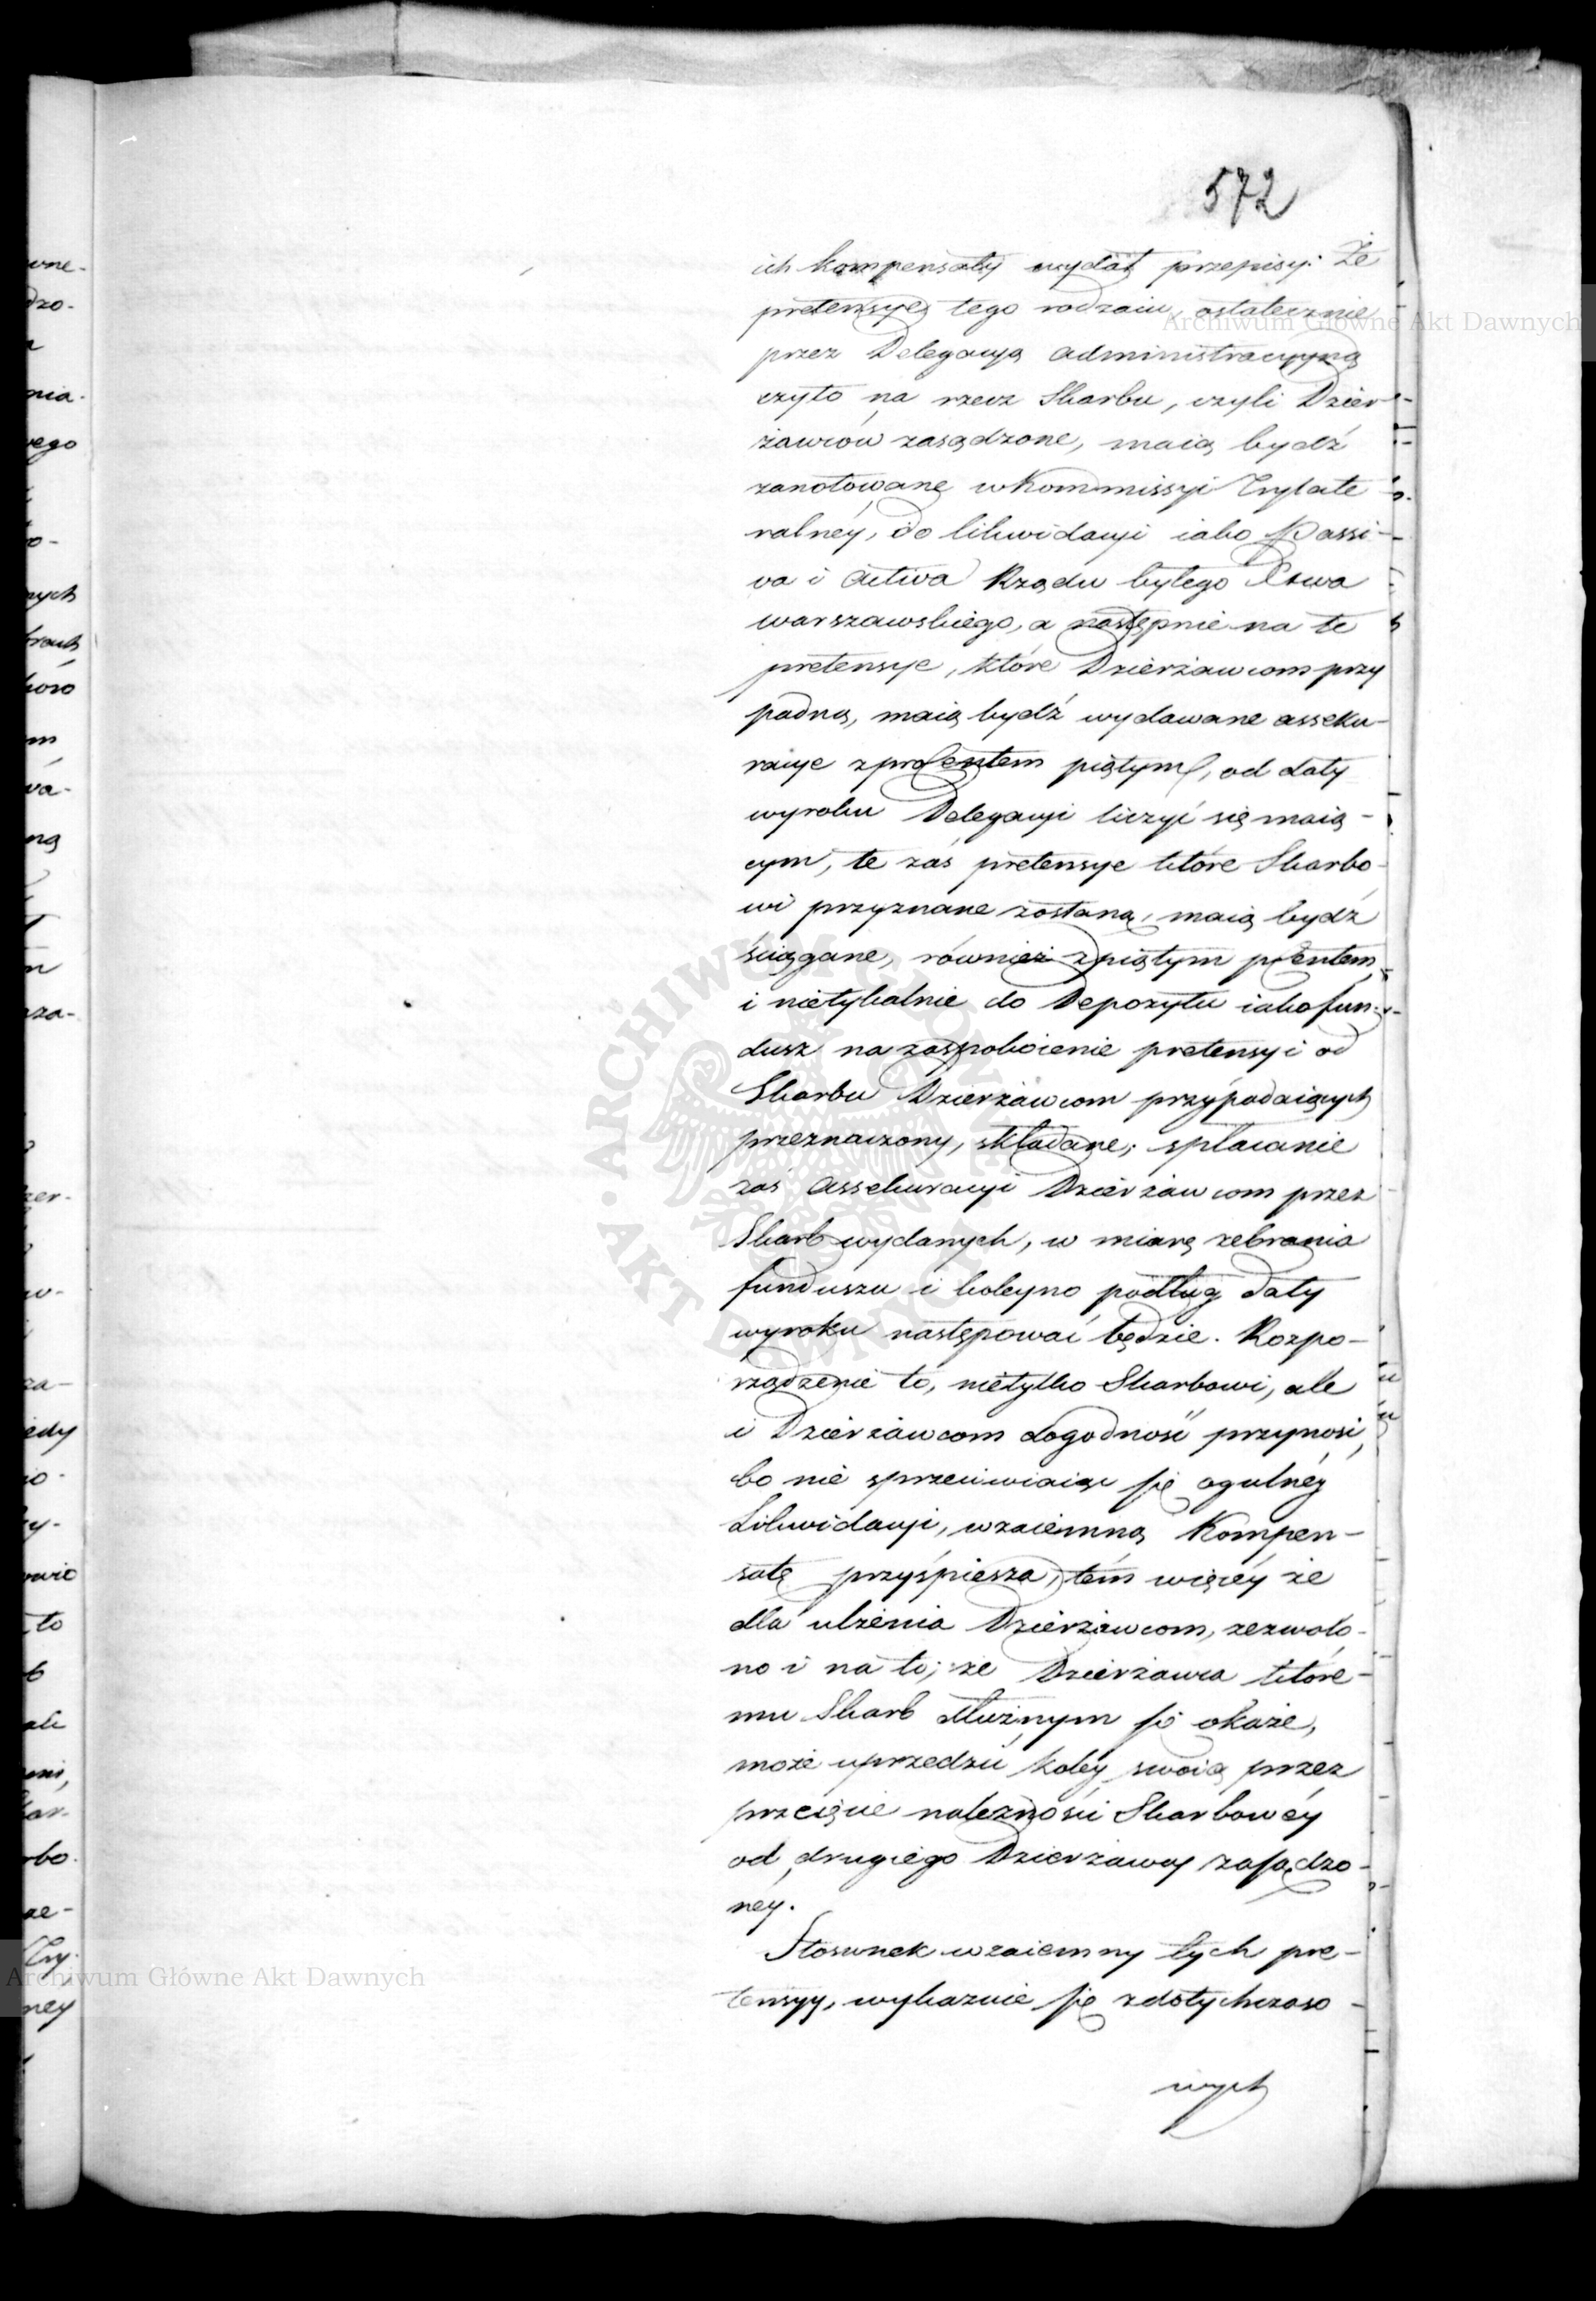 572
ich kompensaty wydał przepisy: Że
pretensye tego rodzaiu, ostatecznie
przez Delegacyą administracyyną
czyto na rzecz Skarbu, czyli Dzier-
żawców zasądzone, maią bydź
zanotowane w Kommissyi Trylate
ralnéy, do likwidacyi iako Passi-
va i Activa Rządu byłego Xswa
warszawskiego, a następnie na te
pretensye, które Dzierżawcom przy
padną, maią bydź wydawane asseku-
racye z procentem piątym, od daty
wyroku Delegacyi liczyć się maią-
cym, te zaś pretensye które Skarbo-
wi przyznane zostaną, maią bydź
ściągane, również z piątym prcentem,
i nietykalnie do Depozytu iako fun-
dusz na zaspokoienie pretensyi od
Skarbu Dzierżawcom przypadaiących
przeznaczony, składane; spłacanie
zaś Assekuracyi Dzierżawcom przez
Skarb wydanych, w miarę zebrania
funduszu i koleyno podług daty
wyroku następować będzie. Rozpo-
rządzenie to, nietylko Skarbowi, ale
i Dzierżawcom dogodność przynosi,
bo nie sprzeciwiaiąc się ogulnéy
Likwidacyi, wzaiemną Kompen-
satę przyśpiesza, tém więcéy że
dla ulżenia Dzierżawcom, zezwolo-
no i na to; że Dzierżawca które-
mu Skarb dłużnym się okaże,
może uprzedzić koléy swoią przez
przeięcie należności Skarbowéy
od drugiego Dzierżawcy zasądzo-
néy.
Stosunek wzaiemny tych pre-
tensyy, wykazuie się z dotychczaso-
wych
Archiwum Główne Akt Dawnych
Archiwum Główne Akt Dawnych
ARCHIWUM GŁÓWNE AKT DAWNYCH